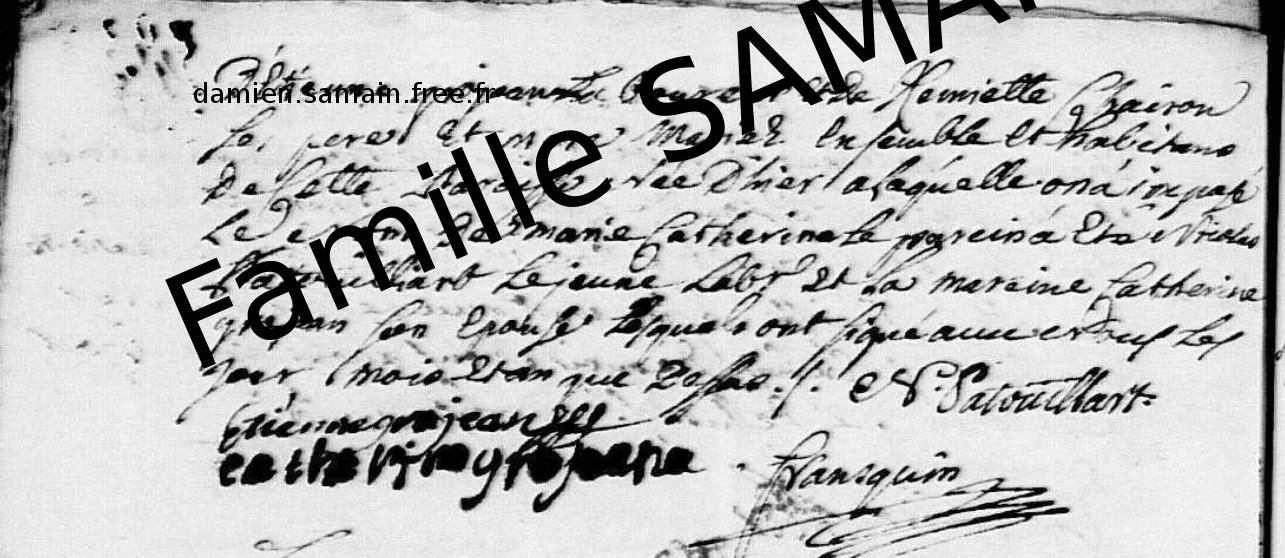 Famille SAMAI
damien.samain.free.fr
D'étienne grojean La boureur et de Henriette Chairon
Les pere et mere Mariez Ensemble et habitans
De Cette Paroisse née D'hier a laquelle on a imposé
Le nom De marie Catherine Le parein a Eté Nicolas
Patouillart Le jeune Labr et La mareine Catherine
grojean son Epouse Lesquels ont signé avec nous Les
jour mois et an que Dessus. N. Patouillart
Etienne grojean
catherine grojean
fransquin